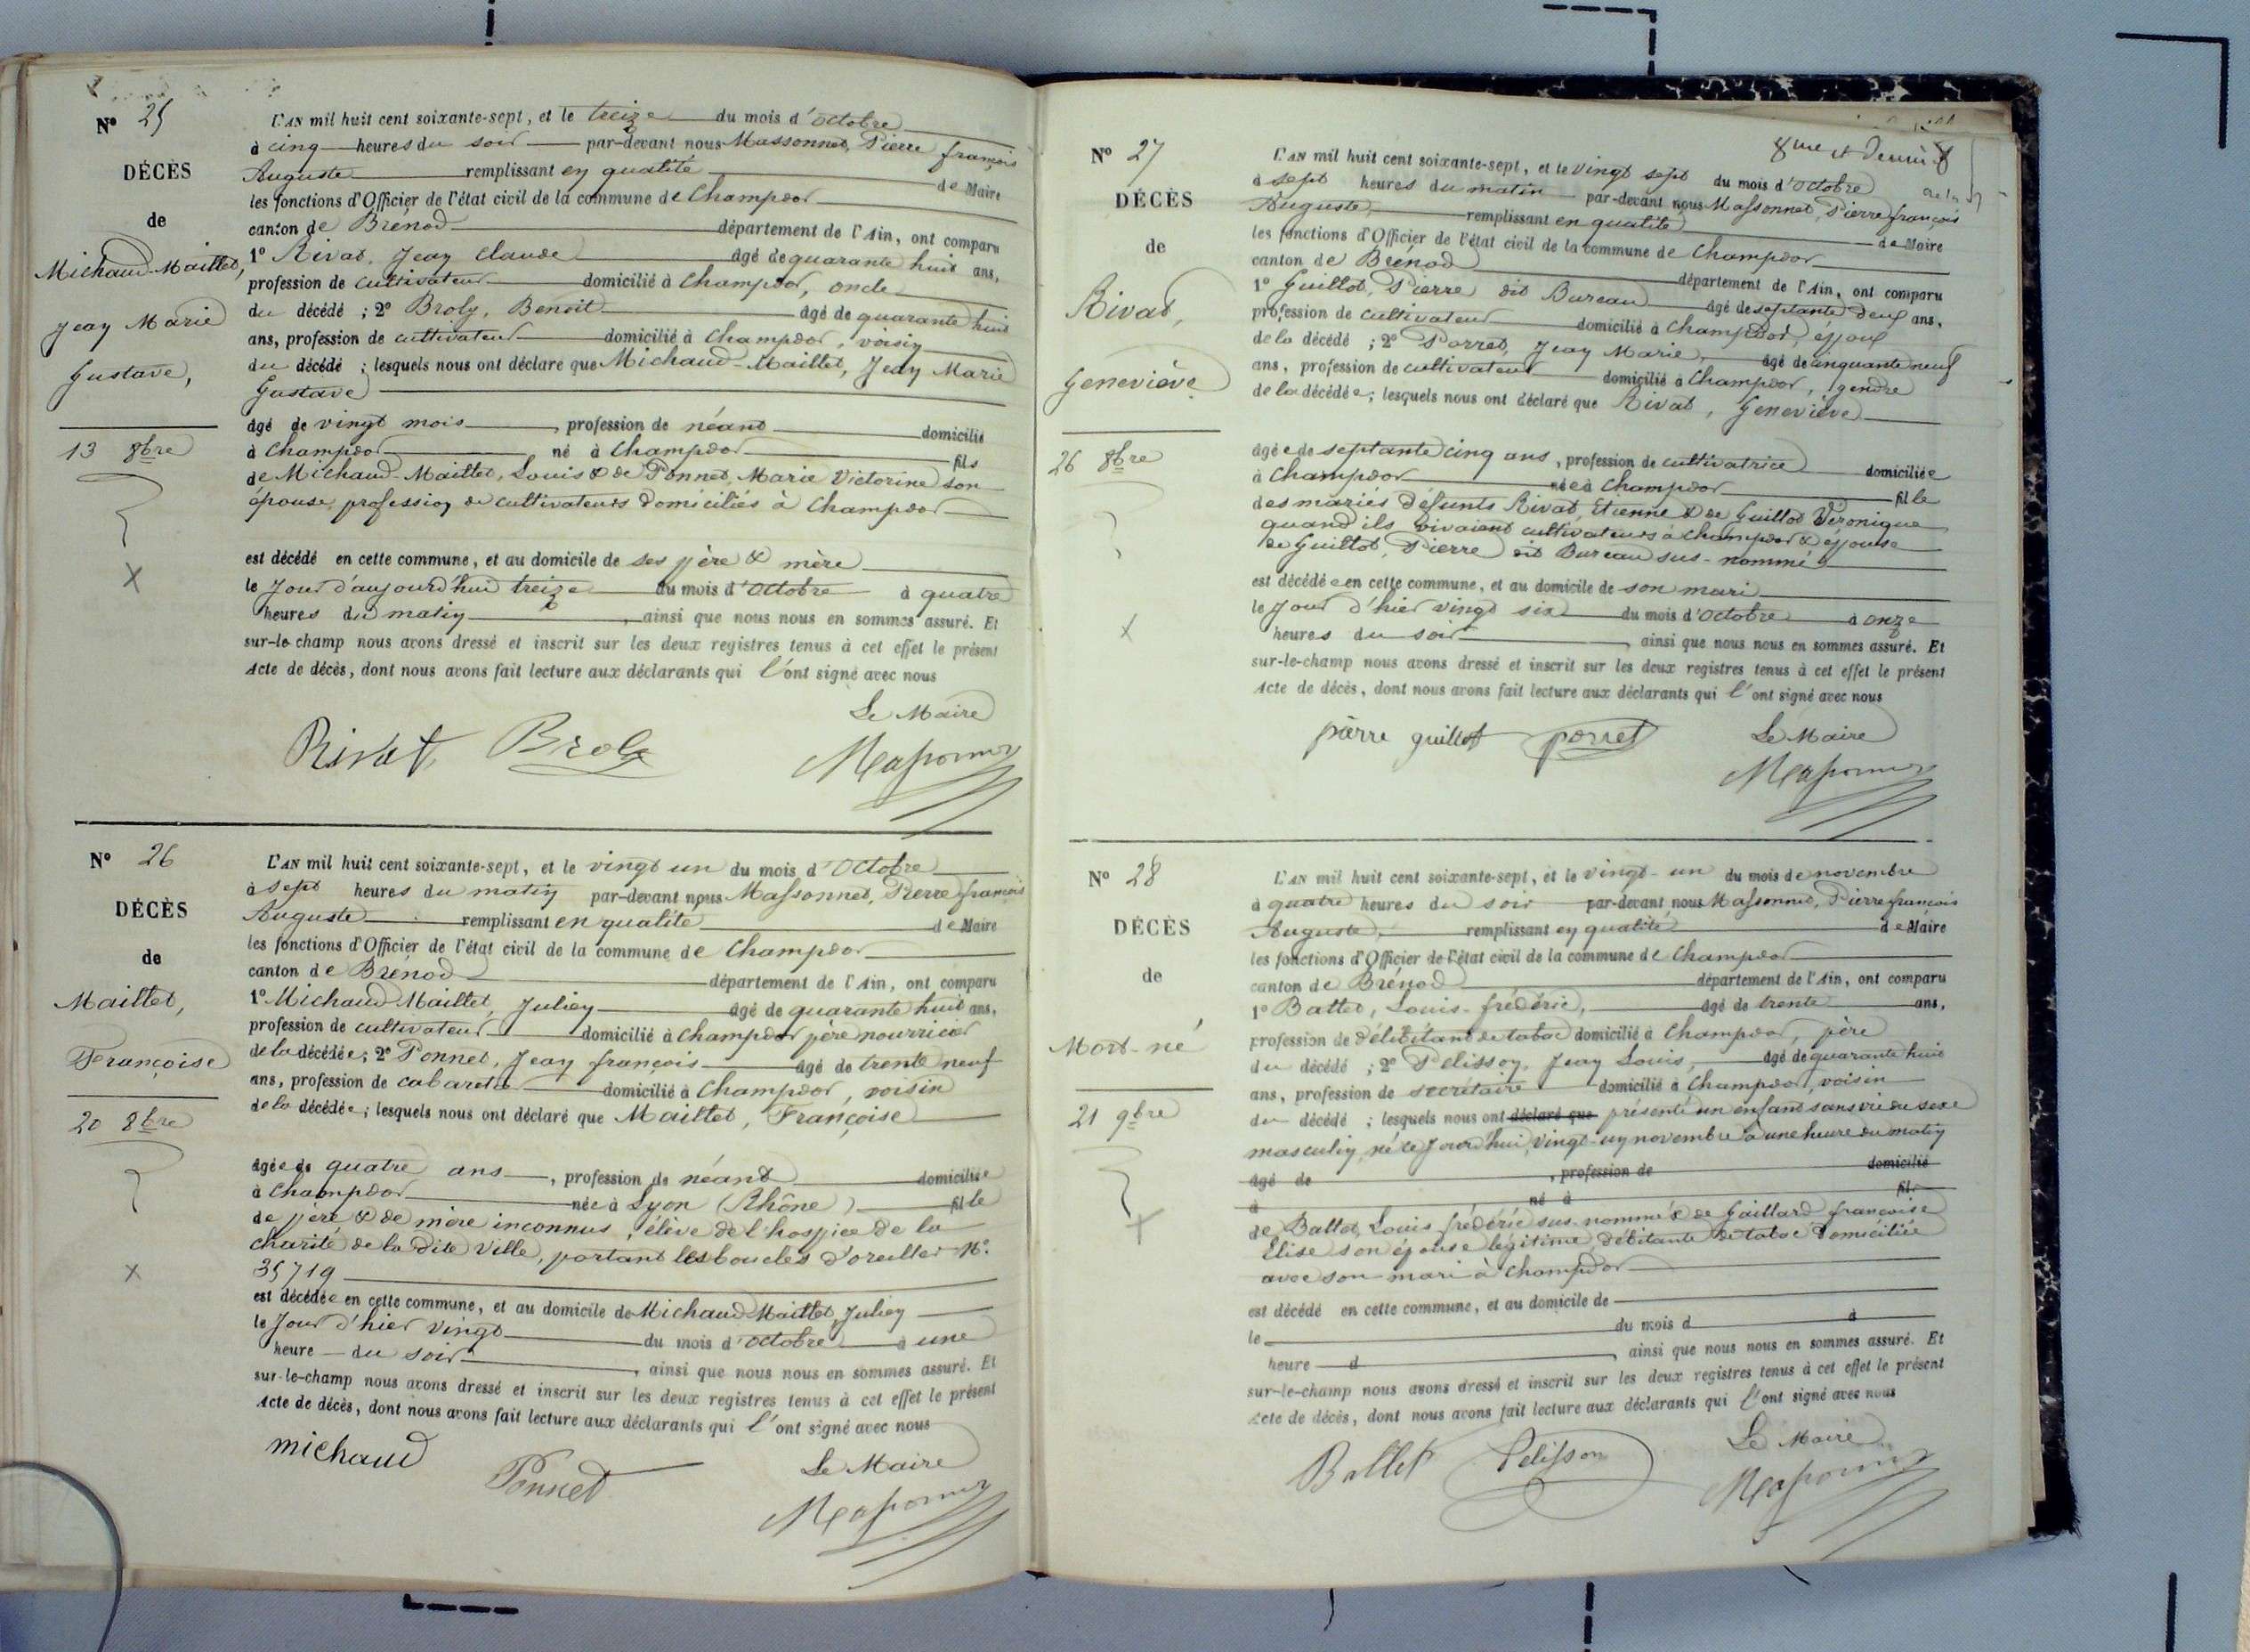 Nº 25
DÉCÈS
de
Michaud-Maillet,
Jean Marie
Gustave,
13 8bre
L'AN mil huit cent soixante-sept, et le treize du mois d'octobre
à cinq heures du soir par-devant nous Massonnet, Pierre françois
Auguste remplissant en qualité de Maire
les fonctions d'Officier de l'état civil de la commune de Champdor
canton de Brénod département de l'Ain, ont comparu
1º Rivat, Jean Claude âgé de quarante huit ans,
profession de cultivateur domicilié à Champdor, oncle
du décédé ; 2º Broly, Benoit âgé de quarante huit
ans, profession de cultivateur domicilié à Champdor, voisin
du décédé ; lesquels nous ont déclaré que Michaud-Maillet, Jean Marie
Gustave
âgé de vingt mois , profession de néant domicilié
à Champdor né à Champdor fils
de Michaud-Maillet, Louis & de Ponnet, Marie Victorine son
épouse, profession de cultivateurs domiciliés à Champdor
est décédé en cette commune, et au domicile de ses père & mère
le jour d'aujourd'hui treize du mois d'octobre à quatre
heures du matin , ainsi que nous nous en sommes assuré. Et
sur-le-champ nous avons dressé et inscrit sur les deux registres tenus à cet effet le présent
Acte de décès, dont nous avons fait lecture aux déclarants qui l'ont signé avec nous
Le Maire
Rivat Broly Massonnet
Nº 26
DÉCÈS
de
Maillet,
Françoise
20 8bre
L'AN mil huit cent soixante-sept, et le vingt un du mois d'Octobre
à sept heures du matin par-devant nous Massonnet, Pierre françois
Auguste remplissant en qualité de Maire
les fonctions d'Officier de l'état civil de la commune de Champdor
canton de Brénod département de l'Ain, ont comparu
1º Michaud Maillet, Julien âgé de quarante huit ans,
profession de cultivateur domicilié à Champdor père nourricier
de la décédée; 2º Ponnet, Jean françois âgé de trente neuf
ans, profession de cabaretier domicilié à Champdor, voisin
de la décédée; lesquels nous ont déclaré que Maillet, Françoise
âgée de quatre ans , profession de néant domiciliée
à Champdor née à Lyon (Rhône) fille
de père & de mère inconnus, élève de l'hospice de la
charité de la dite Ville, portant les boucles d'oreilles Nº
35719
est décédée en cette commune, et au domicile de Michaud Maillet, Julien
le jour d'hier vingt du mois d'octobre à une
heure du soir , ainsi que nous nous en sommes assuré. Et
sur-le-champ nous avons dressé et inscrit sur les deux registres tenus à cet effet le présent
Acte de décès, dont nous avons fait lecture aux déclarants qui l'ont signé avec nous
michaud Ponnet Le Maire
Massonnet
8me et dernier
Nº 27
DÉCÈS
de
Rivat,
Geneviève
26 8bre
L'AN mil huit cent soixante-sept, et le vingt sept du mois d'octobre
à sept heures du matin par-devant nous Massonnet, Pierre françois
Auguste, remplissant en qualité de Maire
les fonctions d'Officier de l'état civil de la commune de Champdor
canton de Brénod département de l'Ain, ont comparu
1º Guillot, Pierre dit Bureau âgé de septante deux ans,
profession de cultivateur domicilié à Champdor, époux
de la décédé ; 2º Porret, Jean Marie, âgé de cinquante neuf
ans, profession de cultivateur domicilié à Champdor, gendre
de la décédée; lesquels nous ont déclaré que Rivat, Geneviève
âgée de septante cinq ans , profession de cultivatrice domiciliée
à Champdor née à Champdor fille
des mariés défunts Rivat, Etienne & de Guillot Véronique
quand ils vivaient cultivateurs à Champdor & épouse
de Guillot, Pierre dit Bureau sus-nommé
est décédée en cette commune, et au domicile de son mari
le jour d'hier vingt six du mois d'octobre à onze
heures du soir , ainsi que nous nous en sommes assuré. Et
sur-le-champ nous avons dressé et inscrit sur les deux registres tenus à cet effet le présent
Acte de décès, dont nous avons fait lecture aux déclarants qui l'ont signé avec nous
pierre guillot porret Le Maire
Massonnet
Nº 28
DÉCÈS
de
Mort-né
21 9bre
L'AN mil huit cent soixante-sept, et le vingt-un du mois de novembre
à quatre heures du soir par-devant nous Massonnet, Pierre françois
Auguste, remplissant en qualité de Maire
les fonctions d'Officier de l'état civil de la commune de Champdor
canton de Brénod département de l'Ain, ont comparu
1º Ballet, Louis-frédéric, âgé de trente ans,
profession de débitant de tabac domicilié à Champdor, père
du décédé ; 2º Pelisson, Jean Louis, âgé de quarante huit
ans, profession de secrétaire domicilié à Champdor, voisin
du décédé ; lesquels nous ont déclaré que présenté un enfant sans vie du sexe
masculin, né ce jourd'hui, vingt-un novembre à une heure du matin
âgé de , profession de domicilié
à né à fils
de Ballet, Louis frédéric sus-nommé & de Gaillard françoise
Elise son épouse légitime, débitante de tabac domiciliée
avec son mari à Champdor
est décédé en cette commune, et au domicile de
le du mois d à
heure d , ainsi que nous nous en sommes assuré. Et
sur-le-champ nous avons dressé et inscrit sur les deux registres tenus à cet effet le présent
Acte de décès, dont nous avons fait lecture aux déclarants qui l'ont signé avec nous
Ballet Pelisson Le Maire
Massonnet